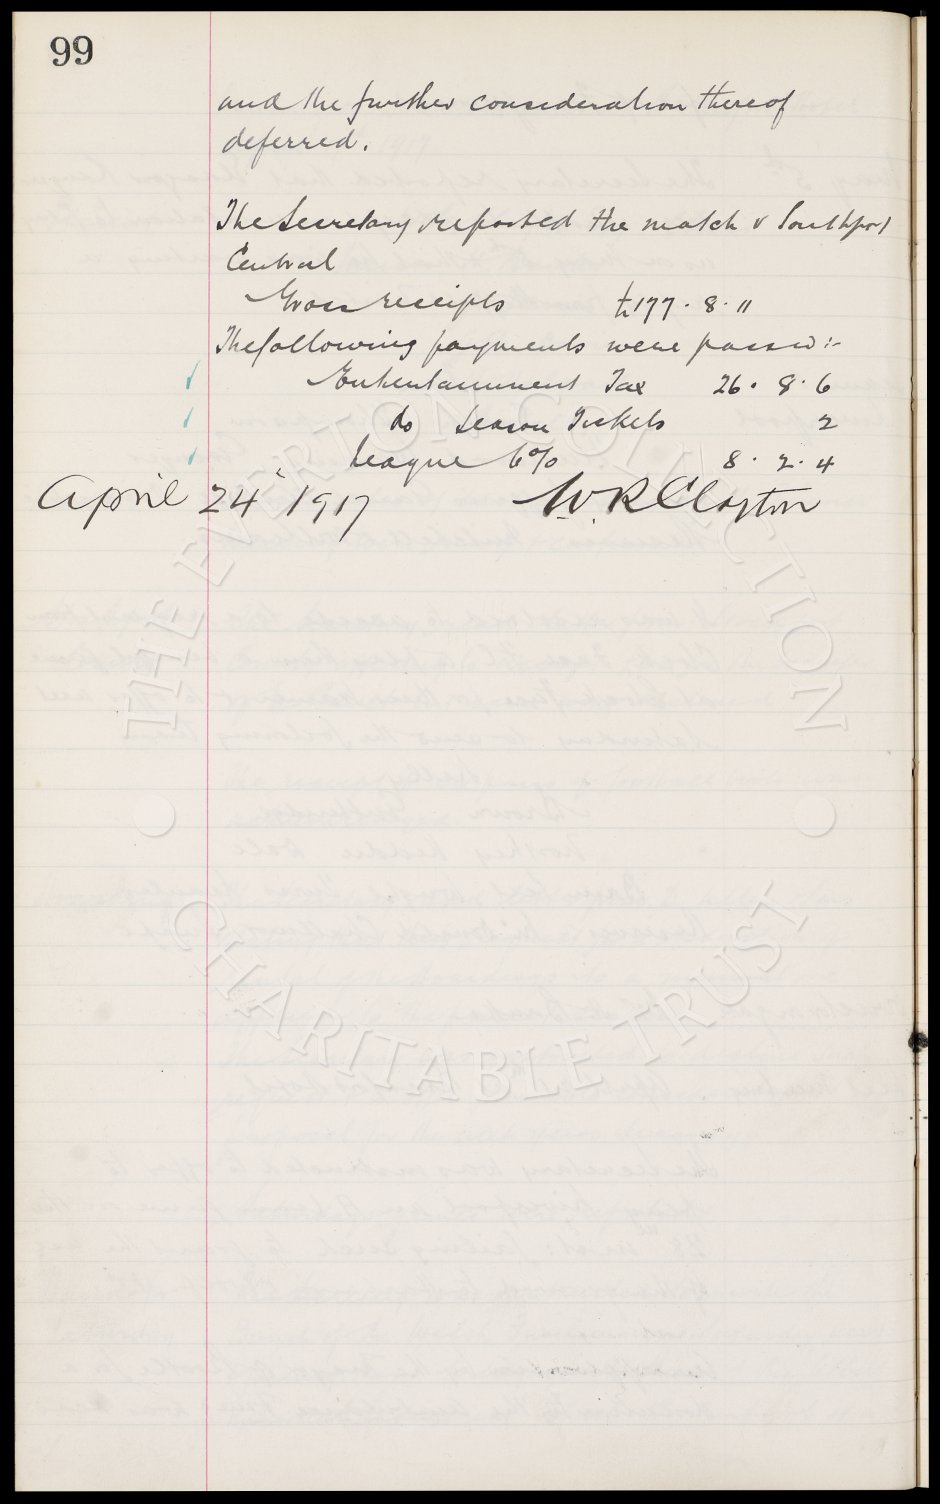 99
and the further consideration thereof
deferred.
The Secretary reported the match v Southport
Central
Gross receipts £177 . 8 . 11
The following payments were passed :-
Entertainment Tax 26 . 8 . 6
do Season Tickets 2
League 6% 8 . 2 . 4
April 24" 1917 W. R Clayton
THE EVERTON COLLECTION
CHARITABLE TRUST